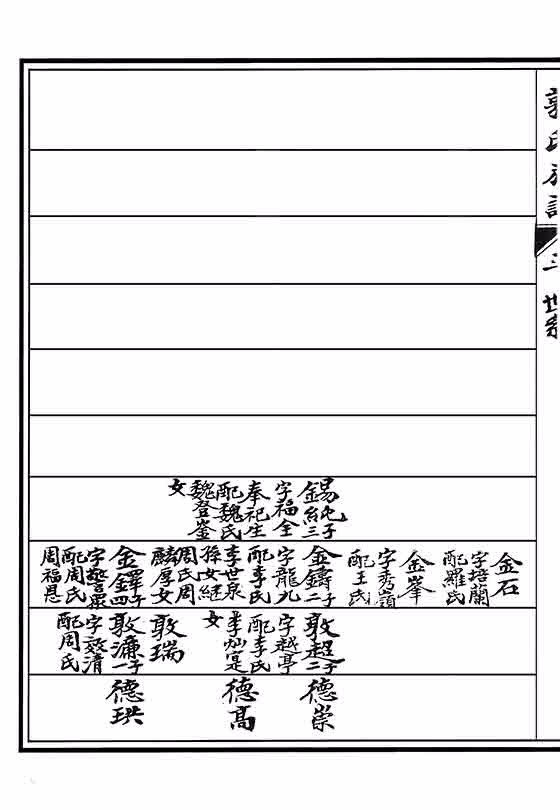 郭氏族譜
三
世系
錫純三子
字福全
奉祀生
配魏氏
魏登崟
女
金石
字培蘭
配羅氏
金峯
字秀嶺
配王氏
金鑄二子
字龍九
配李氏
李世泉
孫女繼
周氏周
麟厚女
金鐸四子
字警衆
配周氏
周福恩
敦超二子
字越亭
配李氏
李灿
女
敦瑞
敦濂一子
字效清
配周氏
德崇
德高
德珙